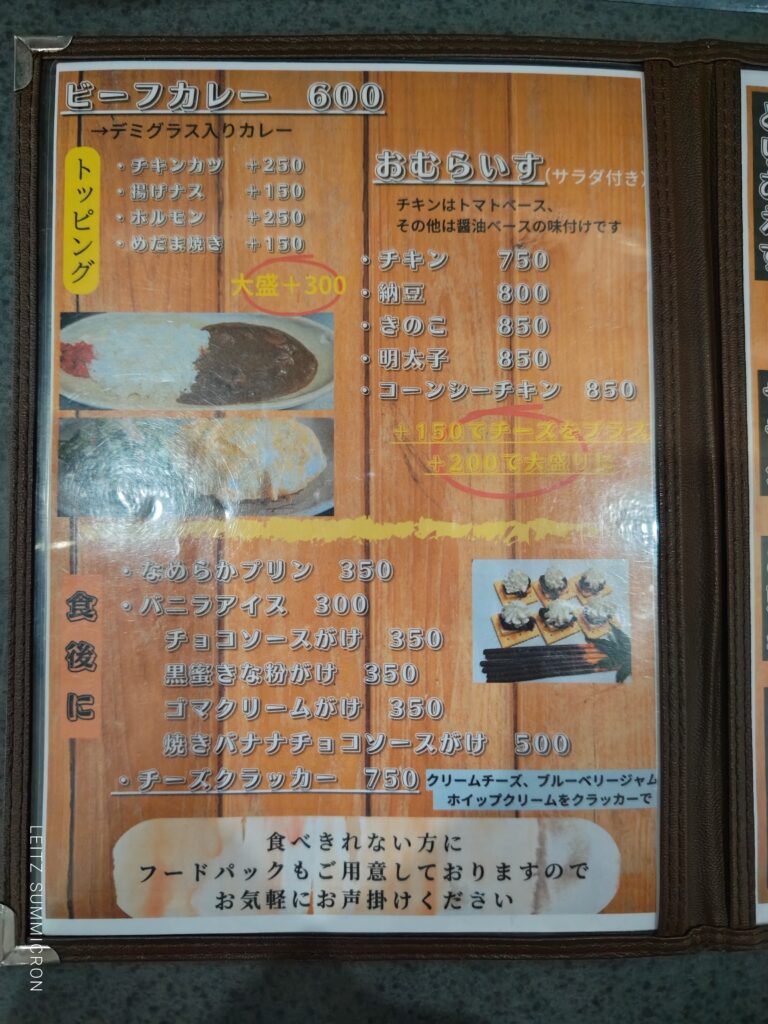 ビーフカレー 600
→デミグラス入りカレー
トッピング
・チキンカツ +250
・揚げナス +150
・ホルモン +250
・めだま焼き +150
大盛+300
おむらいす(サラダ付き)
チキンはトマトベース、
その他は醤油ベースの味付けです
・チキン 750
・納豆 800
・きのこ 850
・明太子 850
・コーンシーチキン 850
+150でチーズをプラス
+200で大盛りに
食後に
・なめらかプリン 350
・バニラアイス 300
チョコソースがけ 350
黒蜜きな粉がけ 350
ゴマクリームがけ 350
焼きバナナチョコソースがけ 500
・チーズクラッカー 750
クリームチーズ、ブルーベリージャム
ホイップクリームをクラッカーで
食べきれない方に
フードパックもご用意しておりますので
お気軽にお声掛けください
LEITZ SUMMICRON